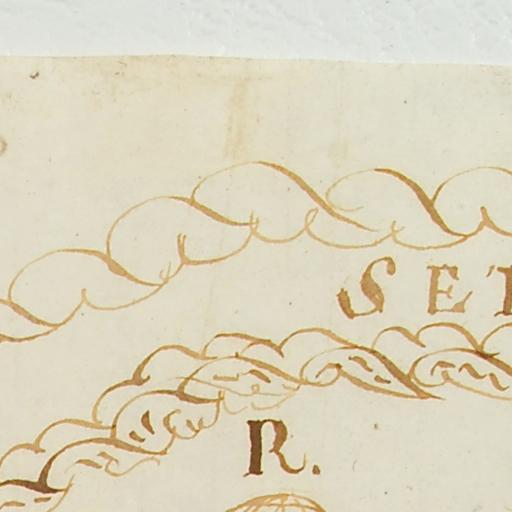 SET
R.